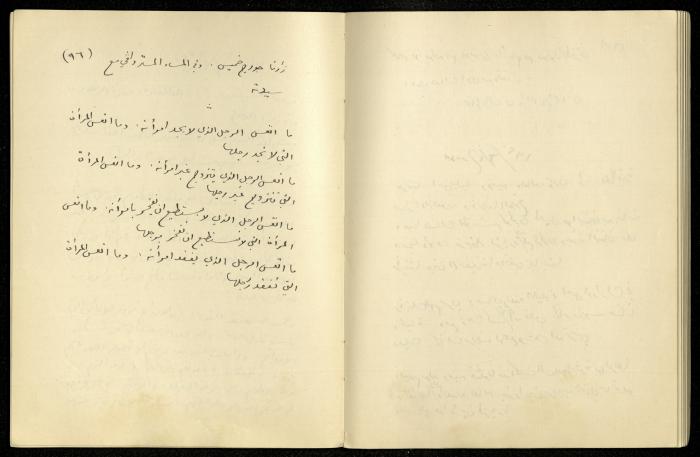 (٩٦)
زارنا جورج خميس. وفي المساء المستر واكي مع
سيدته
ما اتعس الرجل الذي لا يجد امرأته. وما اتعس المرأة
التي لا تجد رجلها
ما اتعس الرجل الذي يتزوج غير امرأته. وما اتعس المرأة
التي تتزوج غير رجلها
ما اتعس الرجل الذي لا يستطيع ان يفخر بامرأته. وما اتعس
المرأة التي لا تستطيع ان تفخر برجلها
ما اتعس الرجل الذي يفقد امرأته. وما اتعس المرأة
التي تفقد رجلها